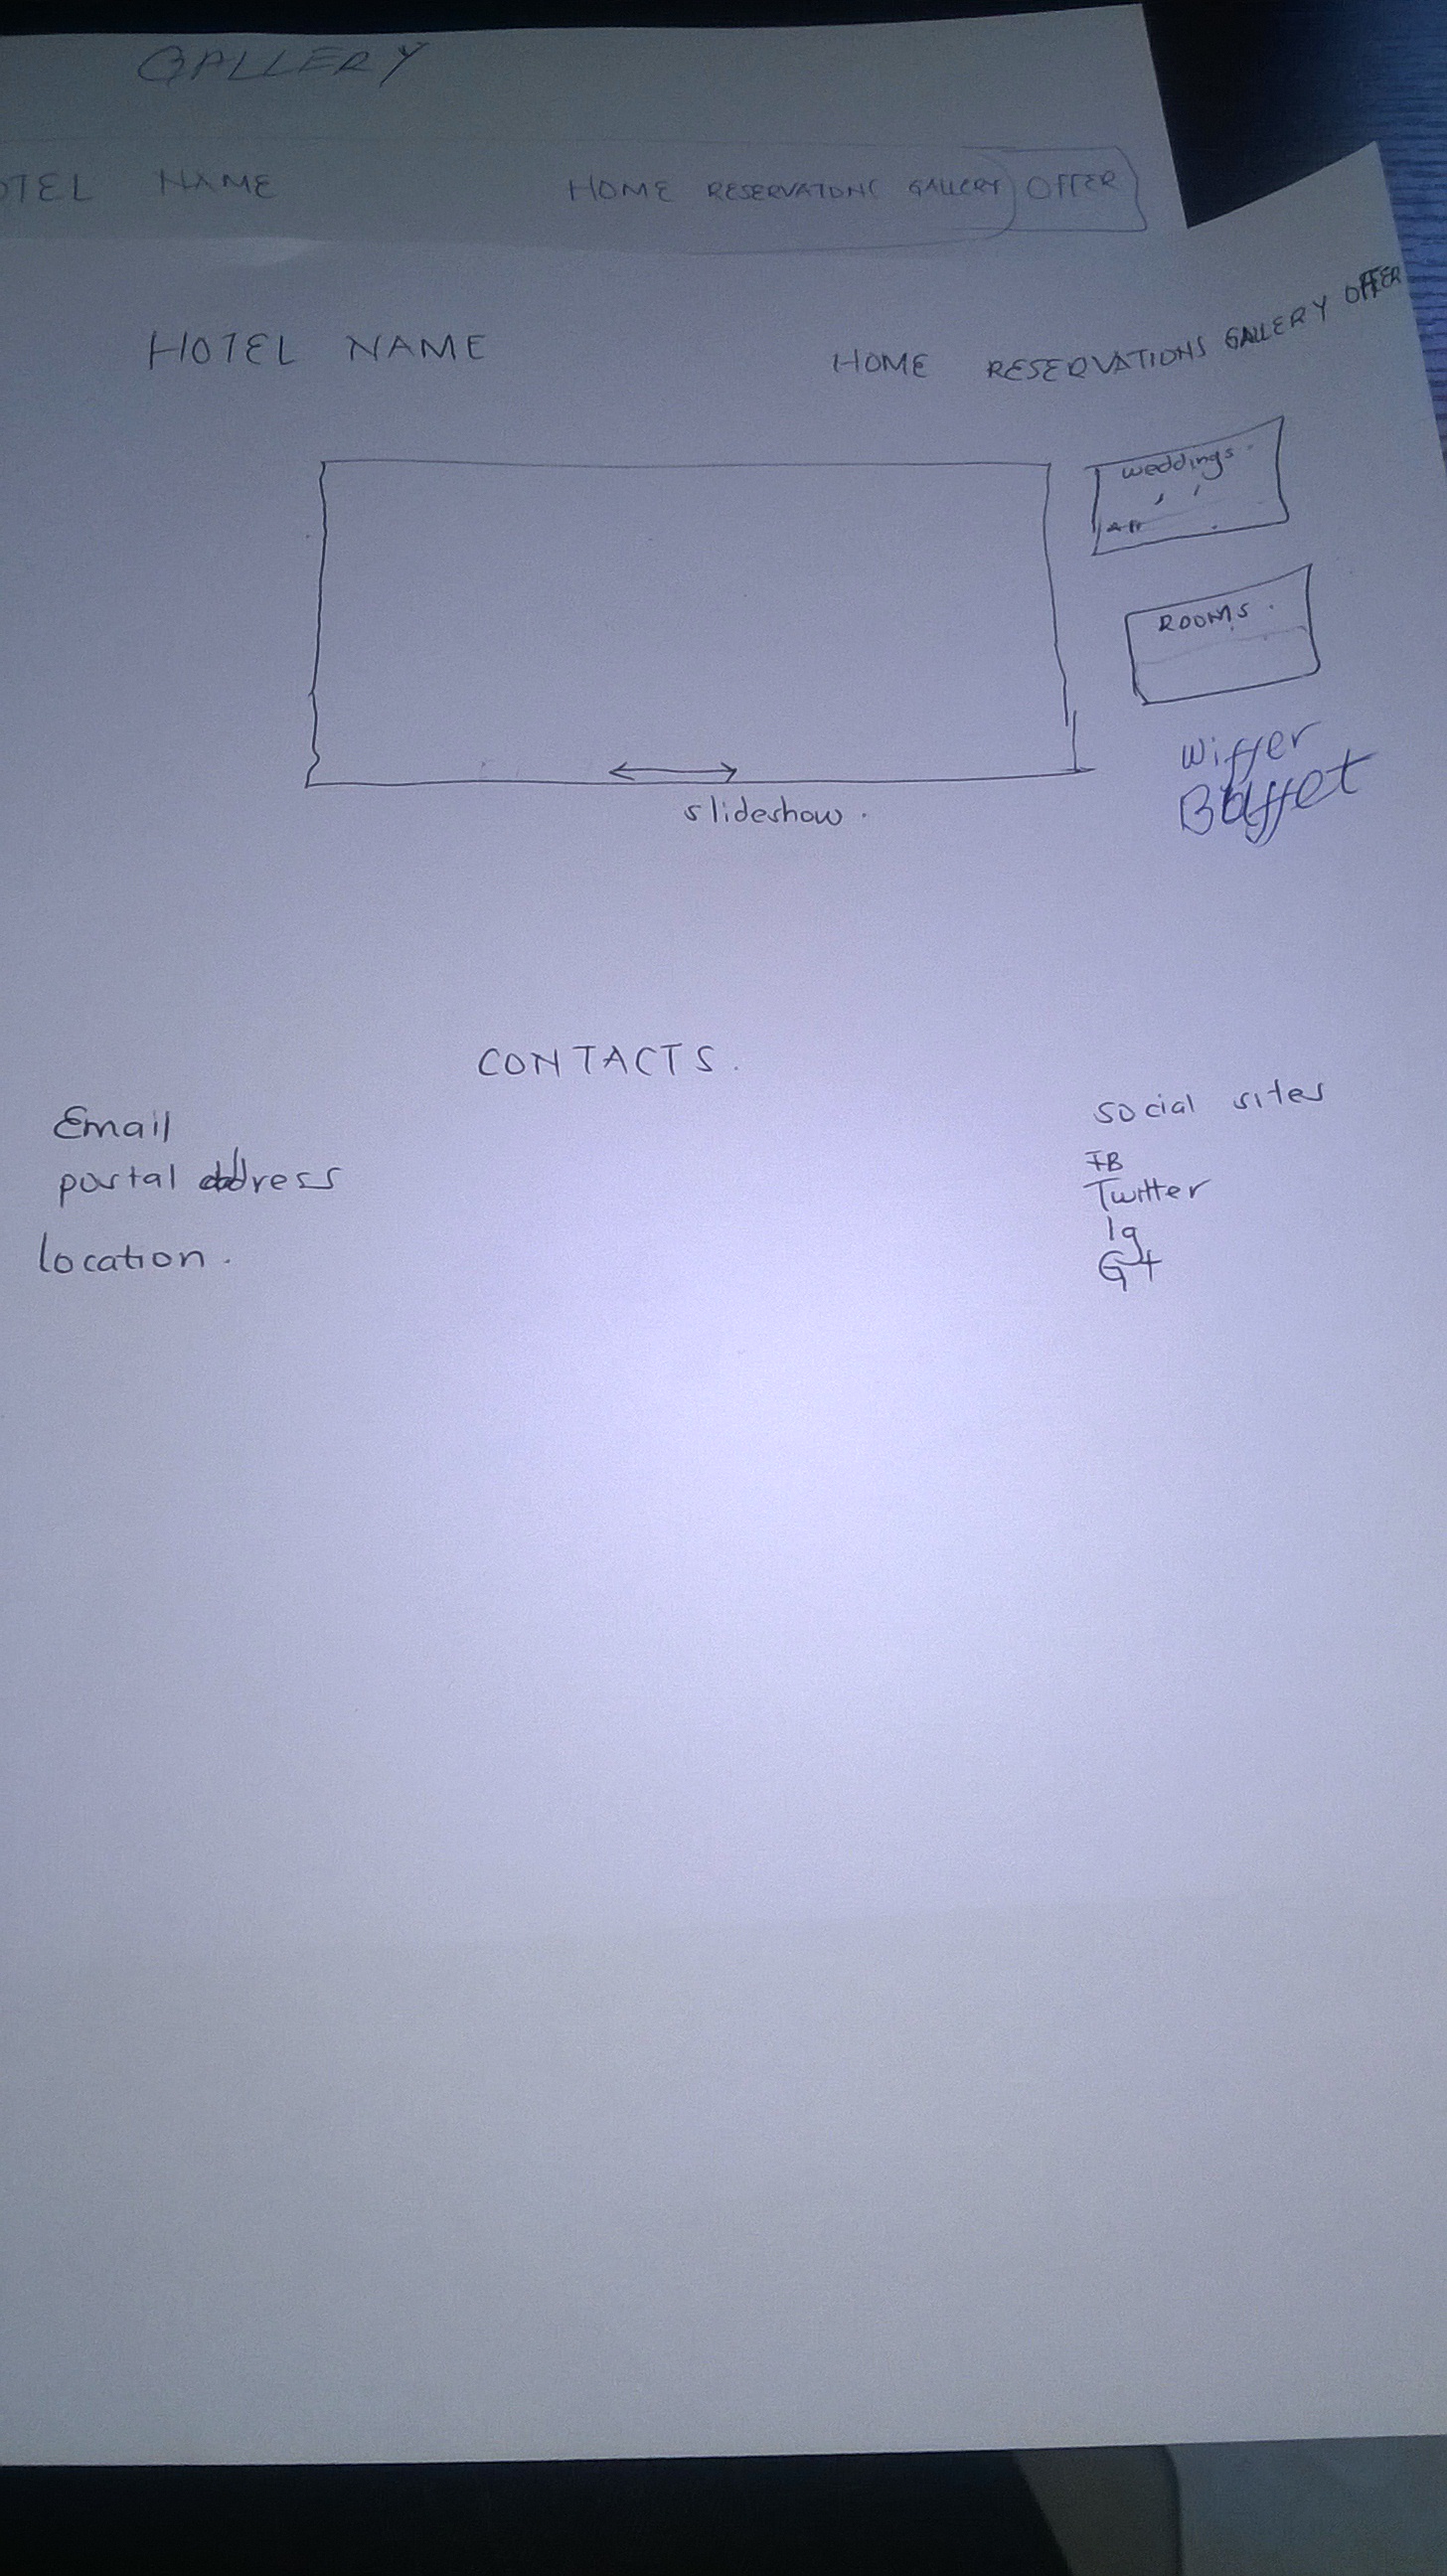 GALLERY
OTEL NAME HOME RESERVATIONS GALLERY OFFER
HOTEL NAME HOME RESERVATIONS GALLERY OFFER
weddings.
ROOMS.
Wiffer
Buffet
slideshow.
CONTACTS.
Email
postal address
location.
social sites
FB
Twitter
Ig
G+